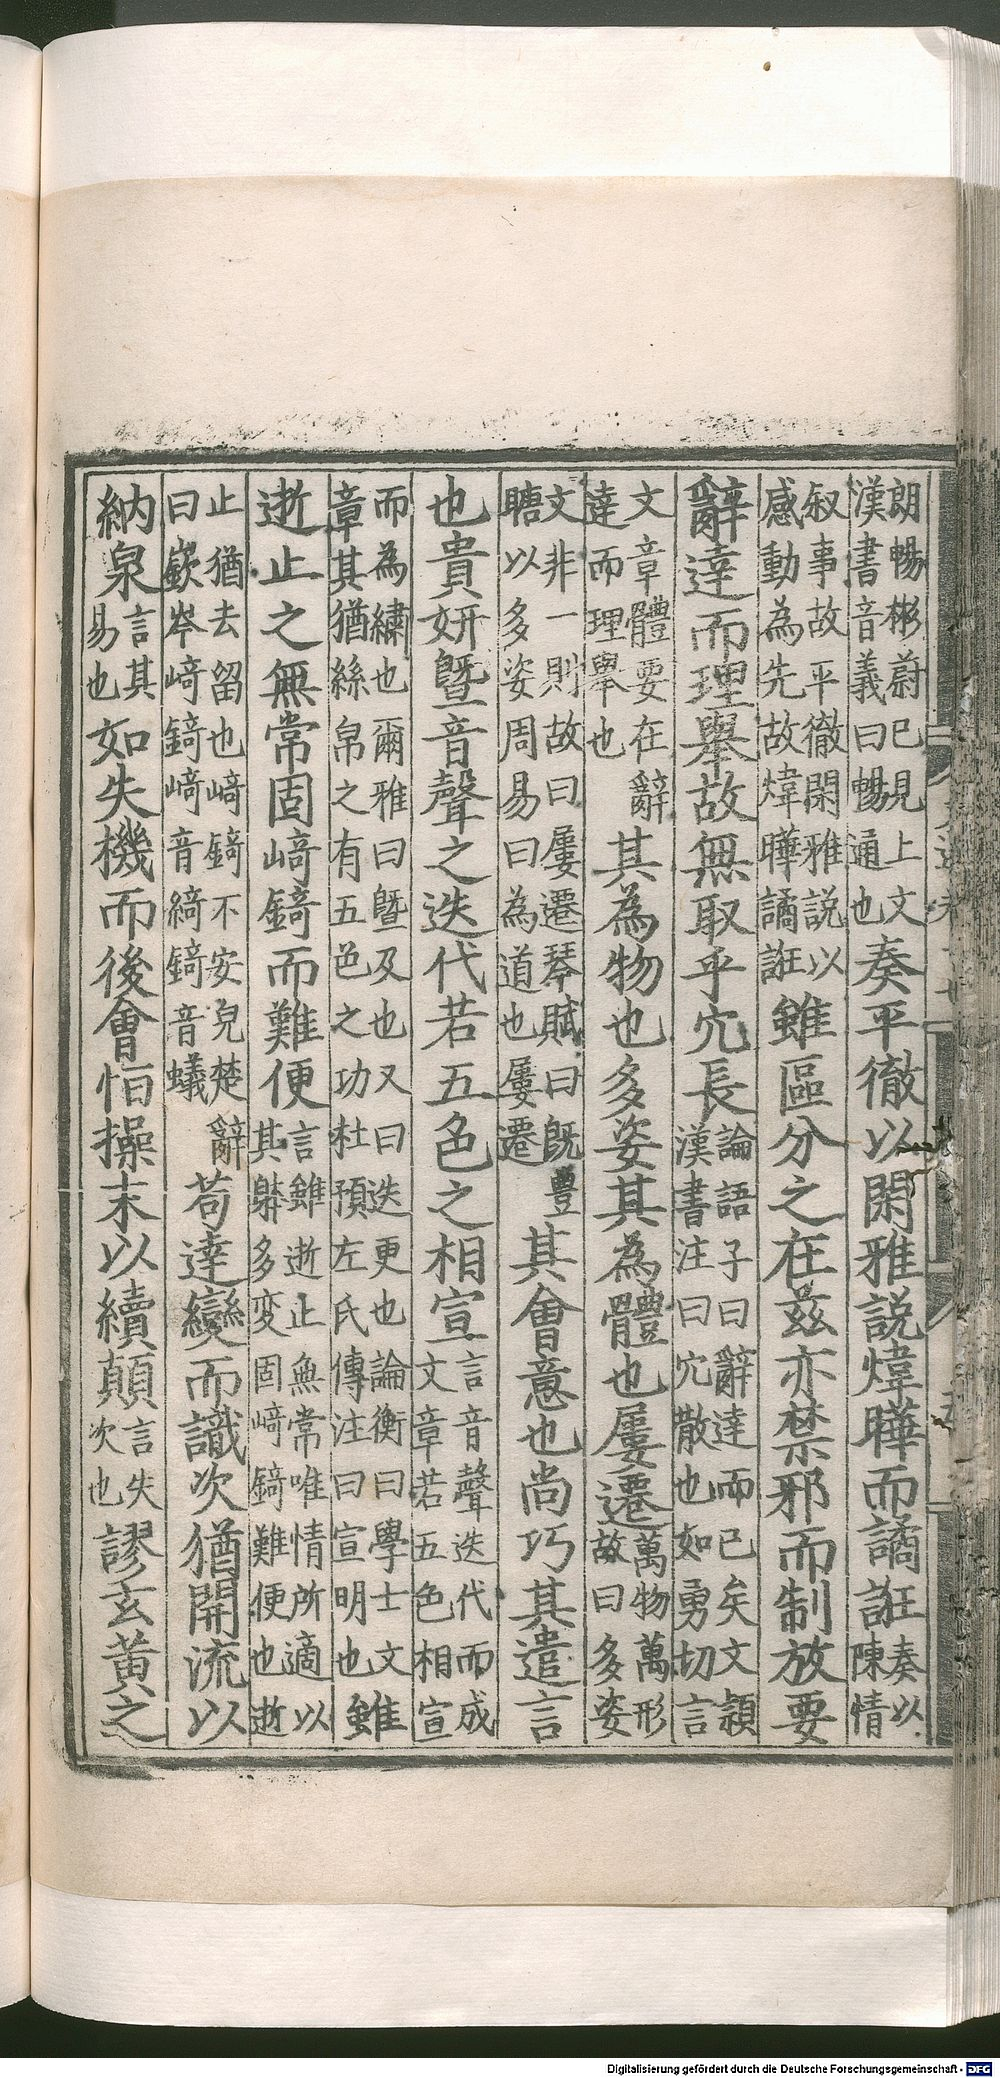 朗暢彬蔚已見上文
漢書音義曰暢通也
奏平徹以閑雅說煒曄而譎誑
奏以
陳情
叙事故平徹閑雅說以
感動為先故煒曄譎誑
雖區分之在茲亦禁邪而制放要
辭達而理舉故無取乎冗長
論語子曰辭達而已矣文潁
漢書注曰冗散也如勇切言
文章體要在辭
達而理舉也
其為物也多姿其為體也屢遷
萬物萬形
故曰多姿
文非一則故曰屢遷琴賦曰既豐
贍以多姿周易曰為道也屢遷
其會意也尚巧其遣言
也貴妍暨音聲之迭代若五色之相宣
言音聲迭代而成
文章若五色相宣
而為繡也爾雅曰暨及也又曰迭更也論衡曰學士文
章其猶絲帛之有五色之功杜預左氏傳注曰宣明也雖
逝止之無常固崎錡而難便
言雖逝止無常唯情所適以
其躰多変固崎錡難便也逝
止猶去留也崎錡不安皃楚辭
曰嶔岑崎錡崎音綺錡音蟻
苟達變而識次猶開流以
納泉
言其
易也
如失機而後會恒操末以續顛
言失
次也
謬玄黃之
Digitalisierung gefördert durch die Deutsche Forschungsgemeinschaft - DFG